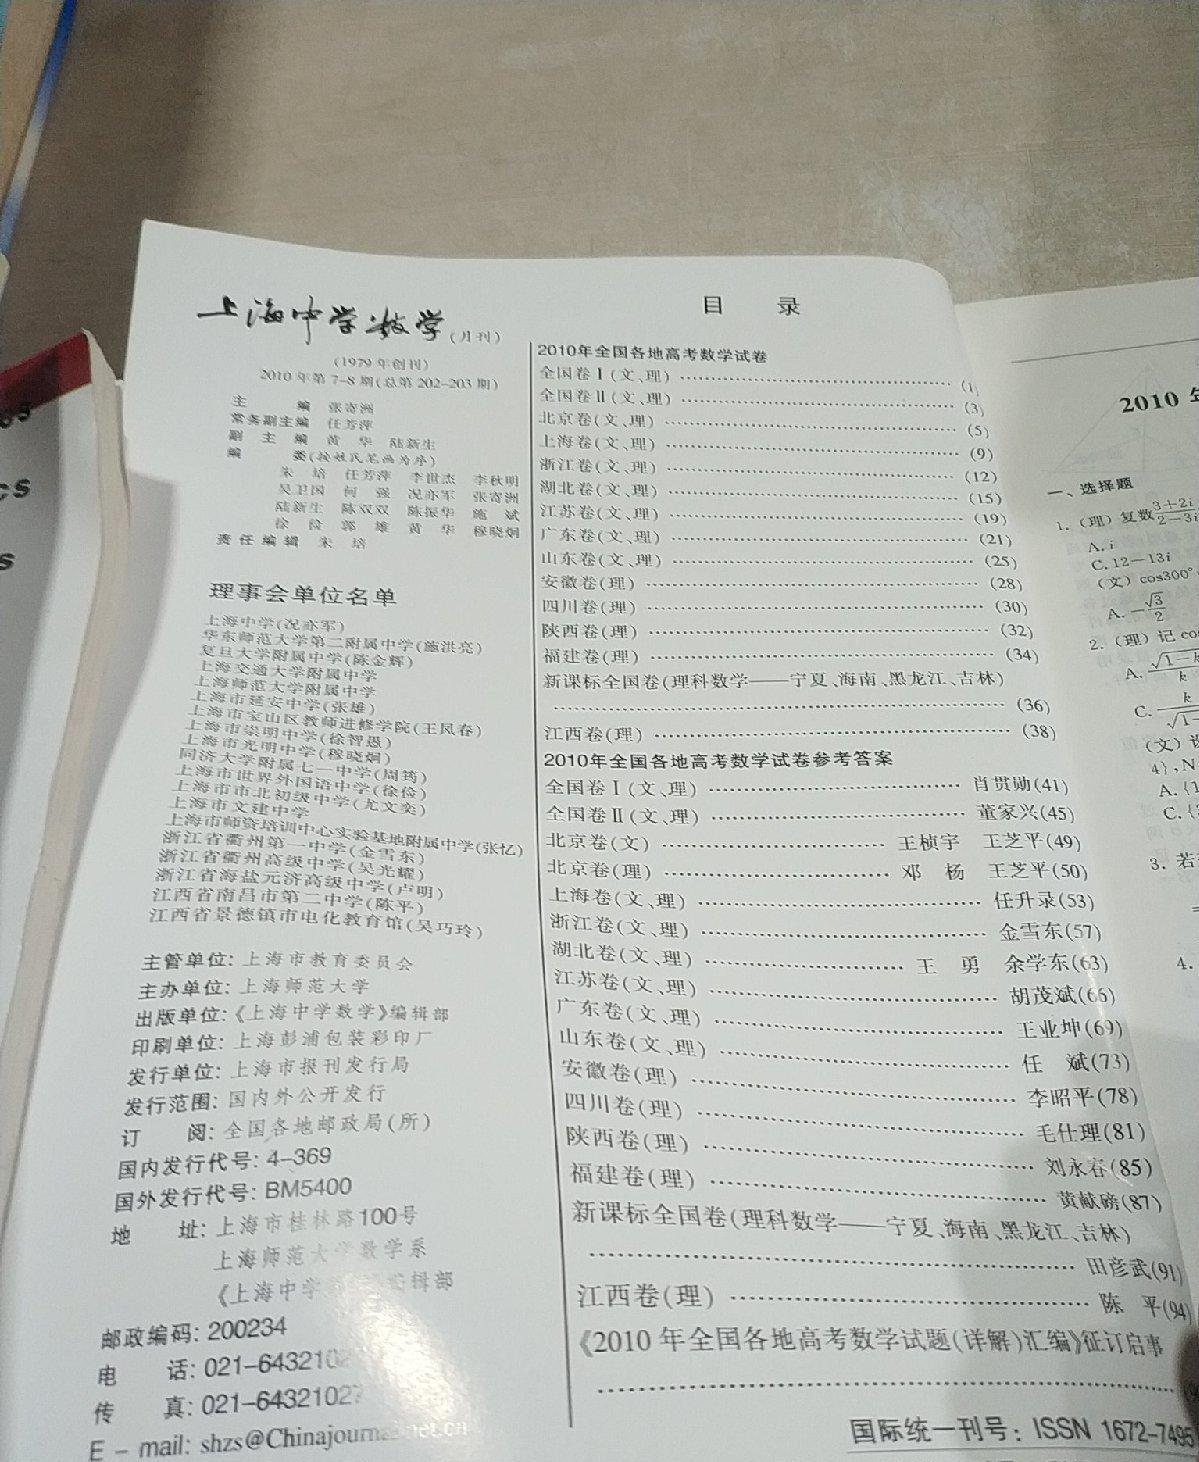 上海中学数学(月刊)
(1979年创刊)
2010年第7-8期(总第202-203期)
主 编 张寄洲
常务副主编 任芳萍
副 主 编 黄 华 陆新生
编 委(按姓氏笔画为序)
朱 培 任芳萍 李世杰 李秋明
吴卫国 何 强 况亦军 张寄洲
陆新生 陈双双 陈振华 施 斌
徐 俭 郭 雄 黄 华 穆晓炯
责任编辑 朱 培
理事会单位名单
上海中学(况亦军)
华东师范大学第二附属中学(施洪亮)
复旦大学附属中学(陈金辉)
上海交通大学附属中学
上海师范大学附属中学
上海市延安中学(张雄)
上海市宝山区教师进修学院(王凤春)
上海市崇明中学(徐智愚)
上海市光明中学(穆晓炯)
同济大学附属七一中学(周筠)
上海市世界外国语中学(徐俭)
上海市市北初级中学(尤文奕)
上海市文建中学
上海市师资培训中心实验基地附属中学(张忆)
浙江省衢州第一中学(金雪东)
浙江省衢州高级中学(吴光耀)
浙江省海盐元济高级中学(卢明)
江西省南昌市第二中学(陈平)
江西省景德镇市电化教育馆(吴巧玲)
主管单位: 上海市教育委员会
主办单位: 上海师范大学
出版单位:《上海中学数学》编辑部
印刷单位: 上海彭浦包装彩印厂
发行单位: 上海市报刊发行局
发行范围: 国内外公开发行
订 阅: 全国各地邮政局(所)
国内发行代号: 4-369
国外发行代号: BM5400
地 址: 上海市桂林路100号
上海师范大学数学系
《上海中学 编辑部
邮政编码: 200234
电 话: 021-6432102
传 真: 021-64321027
E-mail: shzs@Chinajournal.net.cn
目 录
2010年全国各地高考数学试卷
全国卷Ⅰ(文、理) (1)
全国卷Ⅱ(文、理) (3)
北京卷(文、理) (5)
上海卷(文、理) (9)
浙江卷(文、理) (12)
湖北卷(文、理) (15)
江苏卷(文、理) (19)
广东卷(文、理) (21)
山东卷(文、理) (25)
安徽卷(理) (28)
四川卷(理) (30)
陕西卷(理) (32)
福建卷(理) (34)
新课标全国卷(理科数学——宁夏、海南、黑龙江、吉林)
(36)
江西卷(理) (38)
2010年全国各地高考数学试卷参考答案
全国卷Ⅰ(文、理) 肖贯勋(41)
全国卷Ⅱ(文、理) 董家兴(45)
北京卷(文) 王桢宇 王芝平(49)
北京卷(理) 邓 杨 王芝平(50)
上海卷(文、理) 任升录(53)
浙江卷(文、理) 金雪东(57)
湖北卷(文、理) 王 勇 余学东(63)
江苏卷(文、理) 胡茂斌(66)
广东卷(文、理) 王业坤(69)
山东卷(文、理) 任 斌(73)
安徽卷(理) 李昭平(78)
四川卷(理) 毛仕理(81)
陕西卷(理) 刘永春(85)
福建卷(理) 黄献磅(87)
新课标全国卷(理科数学——宁夏、海南、黑龙江、吉林)
田彦武(91)
江西卷(理) 陈 平(94)
《2010年全国各地高考数学试题(详解)汇编》征订启事
国际统一刊号: ISSN 1672-7495
2010 年
一、选择题
1. (理)复数 3+2i/2-3i
A. i
C. 12-13i
(文) cos300°
A. -√3/2
2. (理) 记 cos
A. √1-k /k
C. k/√1-
(文) 设
4}, N
A. {1
C. {
3. 若
4.